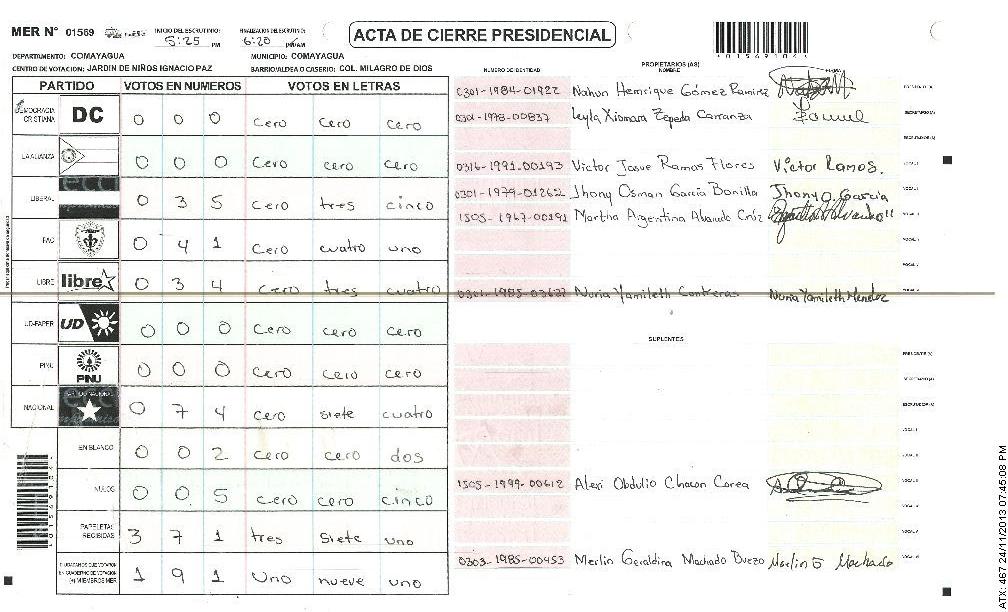 MER N° 01569 INICIO DEL ESCRUTINIO: 5:25 PM FINALIZACION DEL ESCRUTINIO: 6:20 PM/AM
ACTA DE CIERRE PRESIDENCIAL
DEPARTAMENTO: COMAYAGUA MUNICIPIO: COMAYAGUA
CENTRO DE VOTACION: JARDIN DE NIÑOS IGNACIO PAZ BARRIO/ALDEA O CASERIO: COL. MILAGRO DE DIOS
PARTIDO VOTOS EN NUMEROS VOTOS EN LETRAS
DEMOCRACIA CRISTIANA DC 0 0 0 cero cero cero
LA ALIANZA 0 0 0 cero cero cero
LIBERAL 0 3 5 cero tres cinco
PAC 0 4 1 cero cuatro uno
LIBRE libre 0 3 4 cero tres cuatro
UD-FAPER UD 0 0 0 cero cero cero
PINU PINU 0 0 0 cero cero cero
NACIONAL 0 7 4 cero siete cuatro
EN BLANCO 0 0 2 cero cero dos
NULOS 0 0 5 cero cero cinco
PAPELETAS RECIBIDAS 3 7 1 tres siete uno
CIUDADANOS QUE VOTARON EN CUADERNO DE VOTACION (+) MIEMBROS MER 1 9 1 uno nueve uno
PROPIETARIOS (AS)
NUMERO DE IDENTIDAD NOMBRE FIRMA
0301-1984-01922 Nahun Hemrique Gómez Ramirez
0301-1978-00837 Leyla Xiomara Zepeda Carranza
0316-1991-00193 Victor Josue Ramos Flores Victor Ramos.
0301-1979-01262 Jhony Osman Garcia Bonilla Jhony O. Garcia
1505-1967-00191 Martha Argentina Alvarado Cruz
0301-1985-03622 Nuria Yamileth Contreras Nuria Yamileth Mendez
SUPLENTES
1505-1999-00612 Alexi Obdulio Chacon Correa
0303-1985-00453 Merlin Geraldina Machado Buezo Merlin G Machado
ATX: 467 24/11/2013 07:45:08 PM